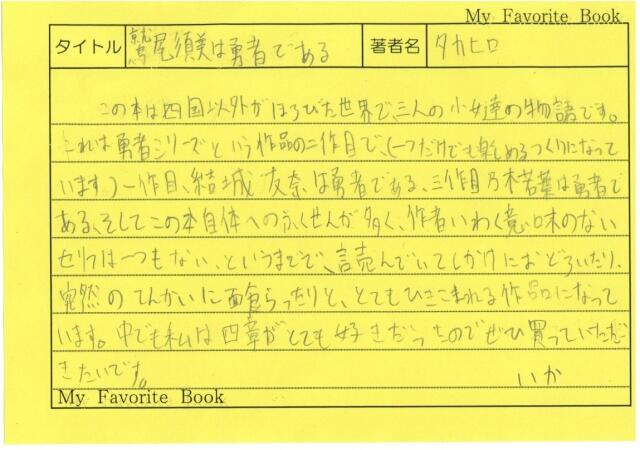 My Favorite Book
タイトル 鷲尾須美は勇者である 著者名 タカヒロ
この本は四国以外がほろびた世界で、三人の少女達の物語です。
これは勇者シリーズという作品の二作目で、(一つだけでも楽しめるつくりになって
います)一作目、結城友奈は勇者である、三作目乃木若葉は勇者で
ある、そしてこの本自体へのふくせんが多く、作者いわく意味のない
セリフは一つもない、というまでで、読んでいてしかけにおどろいたり、
突然のてんかいに面食らったりと、とてもひきこまれる作品になって
います。中でも私は四章がとても好きだったのでぜひ買っていただ
きたいです。
いか
My Favorite Book